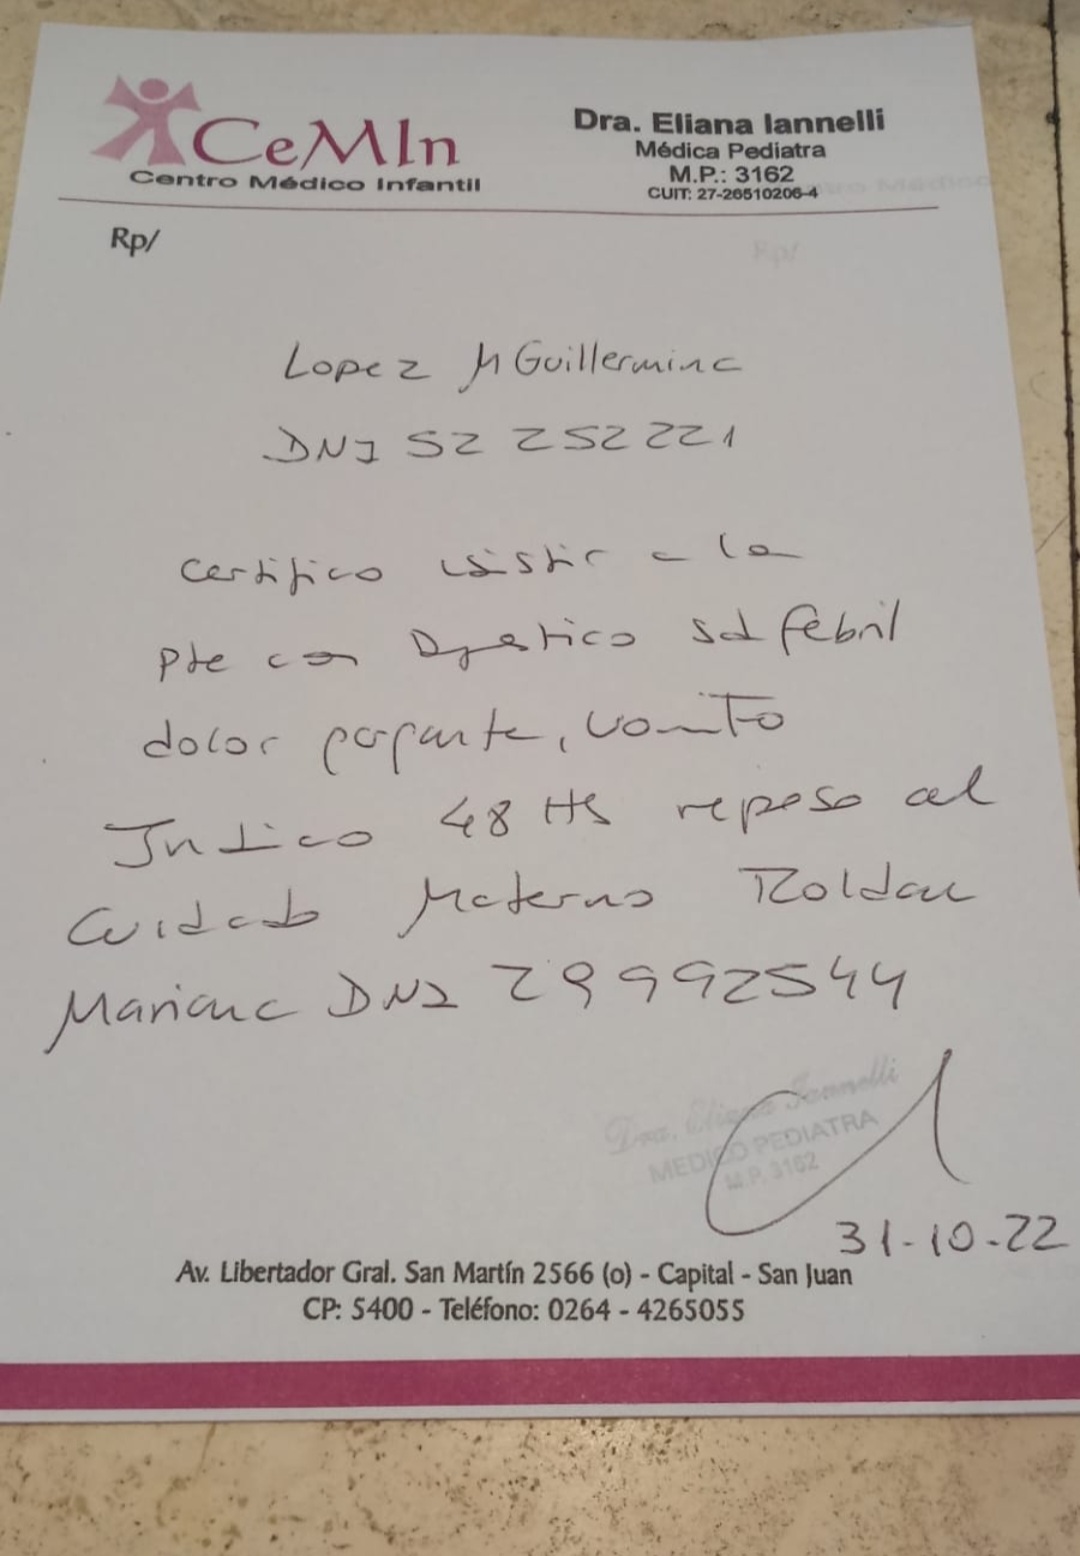 CeMIn
Centro Médico Infantil
Dra. Eliana Iannelli
Médica Pediatra
M.P.: 3162
CUIT: 27-26510206-4
Rp/
Lopez M Guillermina
DNI 52 252 221
Certifico asistir a la
pte con Dgnostico sd febril
dolor faringeo, vomito
Indico 48 Hs reposo al
Cuidado Materno Roldan
Mariana DNI 29992544
Dra. Eliana Iannelli
MEDICO PEDIATRA
M.P. 3162
31-10-22
Av. Libertador Gral. San Martín 2566 (o) - Capital - San Juan
CP: 5400 - Teléfono: 0264 - 4265055